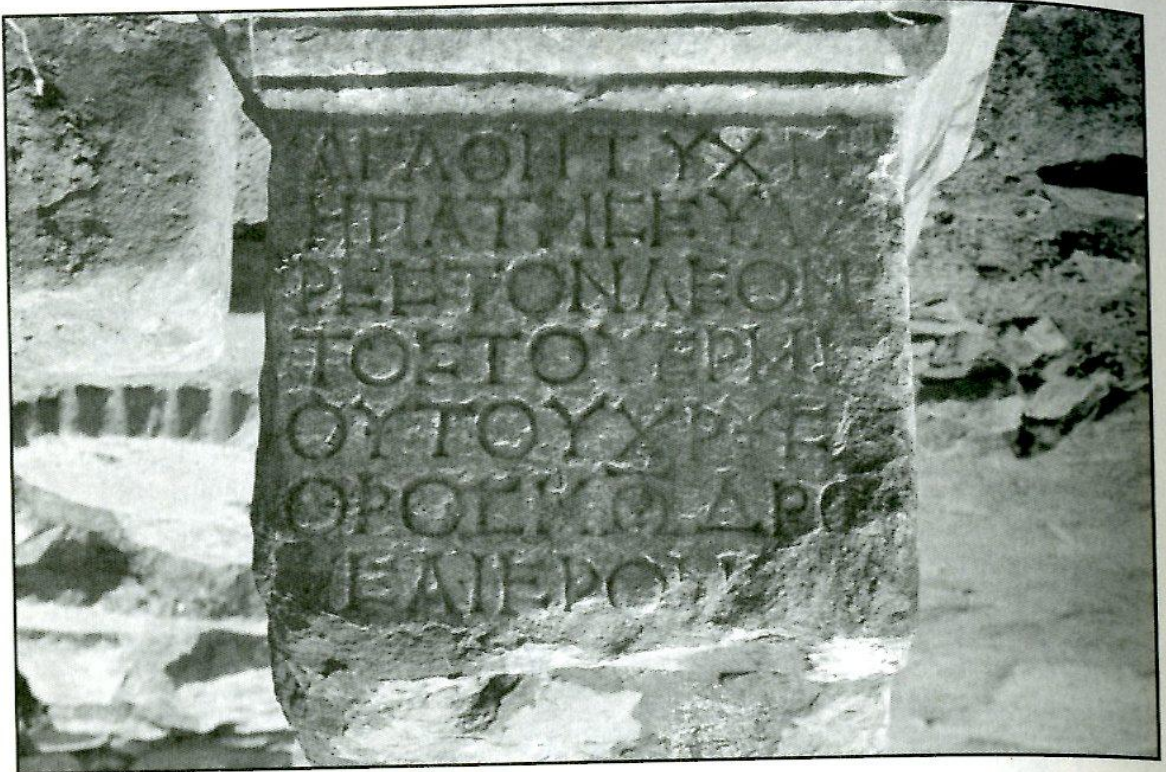 ΑΓΑΘΗΤΥΧΗ
ΗΠΑΤΡΙΣΕΥΑ
ΡΕΣΤΟΝΛΕΟΝ
ΤΟΣΤΟΥΕΡΜΙ
ΟΥΤΟΥΧΡΥΣ
ΟΡΟΣΚΩΔΡΟ
ΕΑΙΕΡΟΝ